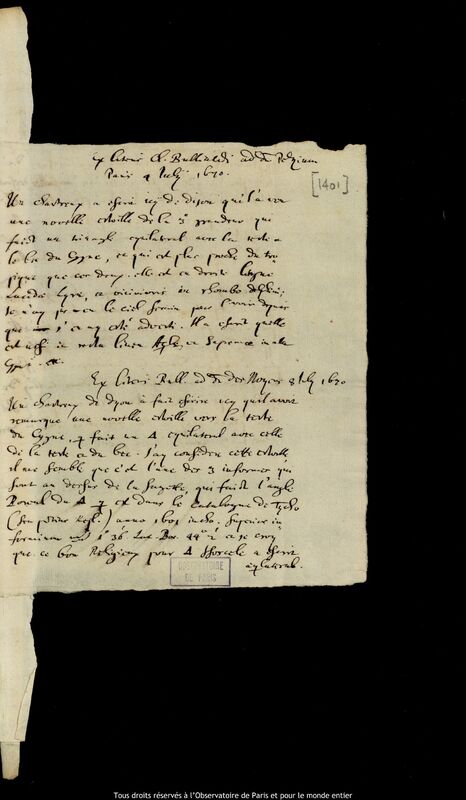 Ex literis Cl. Bullialdi ad D.
Paris 4 July 1670.
[1401]
Un Chartreux a escrit icy de dijon qu'il a veu
une nouvelle estoille de la 3e grandeur qui
faict un triangle equilateral avec la teste &
le bec du Cygne, ce qui est plus proche du tro
pique que ces deux. elle est en droite ligne
Lucida Lyrae, et vicinioris in rhombo Delphini;
le ciel serein pour
que s'en est adverti. Il a escrit qu'elle
est aussi in recta linea
Cygni. etc.
Ex literis Bull. ad D. des Noyers 8 July 1670
Un Chartreux de Dyon a fait escrire icy qu'il avoit
remarqué une nouvelle estoille vers la teste
du Cygne, q fait un Δ equilateral avec celle
de la teste et du bec. J'ay consideré cette estoille,
il me semble que c'est l'une des 3 informes qui
sont au dessus de la Sagette, qui faict l'angle
Boreal du Δ q est dans le Catalogue de Tycho
anno 1601 in
1° 36' Lat. Bor. 44° 2' et je croy
que ce bon Religieux pour Δ Isoscele a escrit
equilateral.
OBSERVATOIRE
DE PARIS
Tous droits réservés à l'Observatoire de Paris et pour le monde entier